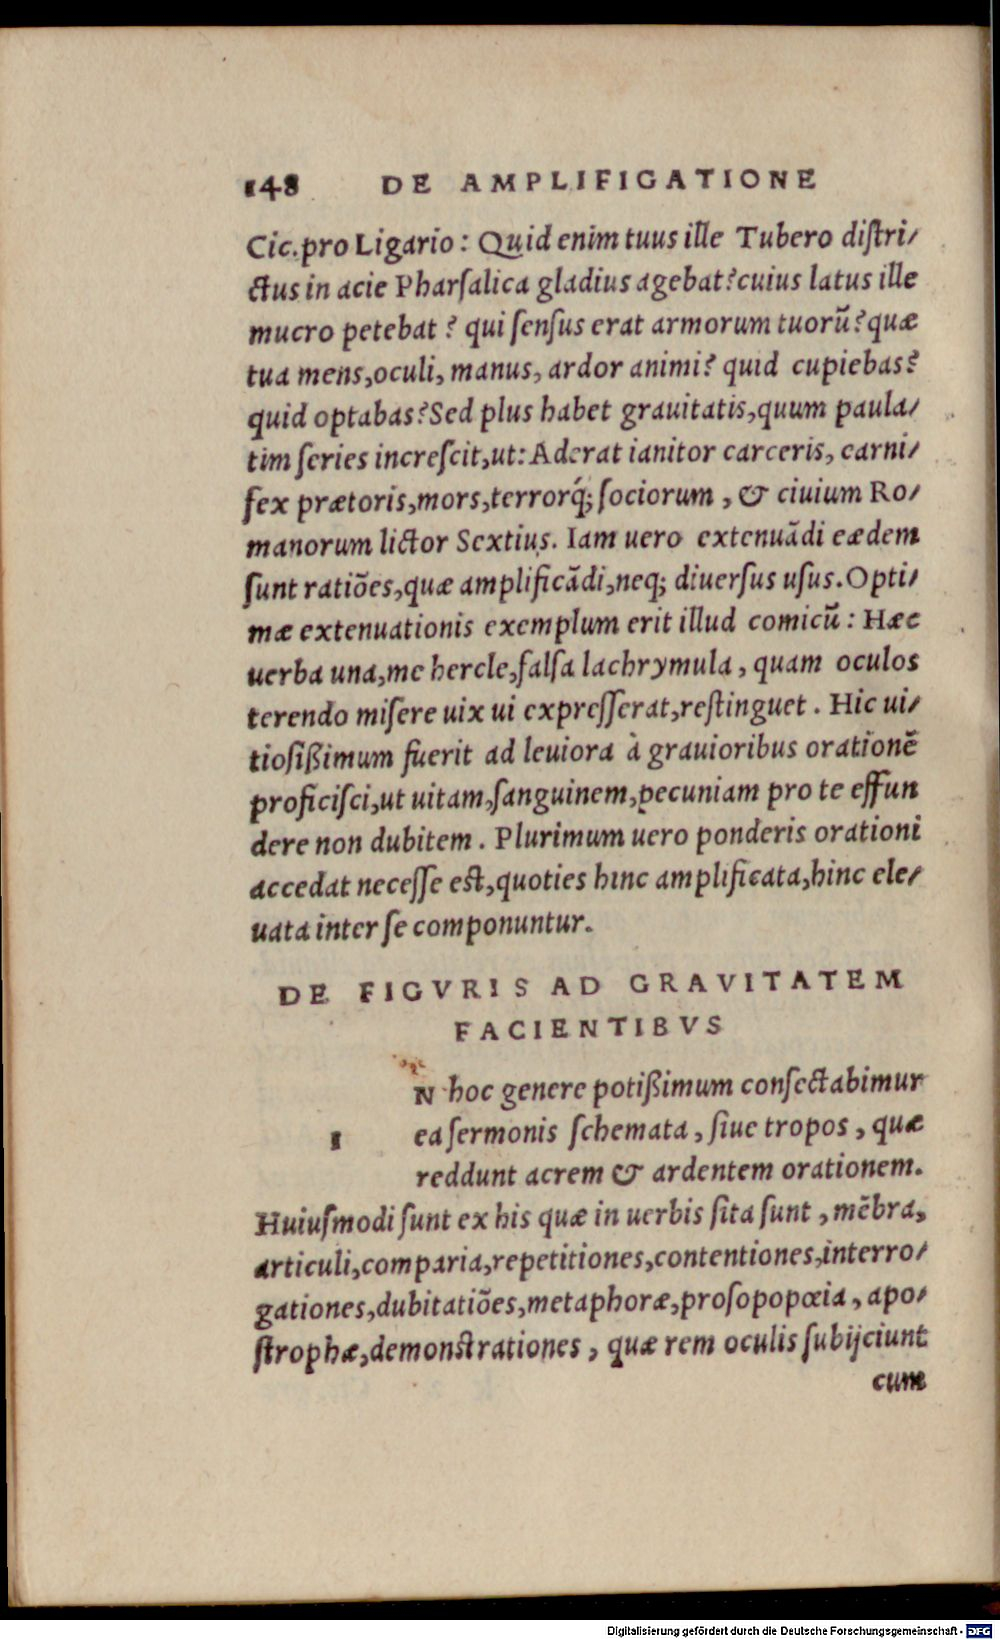 148 DE AMPLIFICATIONE
Cic. pro Ligario: Quid enim tuus ille Tubero distri/
ctus in acie Pharsalica gladius agebat? cuius latus ille
mucro petebat? qui sensus erat armorum tuorũ? quæ
tua mens, oculi, manus, ardor animi? quid cupiebas?
quid optabas? Sed plus habet grauitatis, quum paula/
tim series increscit, ut: Aderat ianitor carceris, carni/
fex prætoris, mors, terrorq́; sociorum, & ciuium Ro/
manorum lictor Sextius. Iam uero extenuãdi eædem
sunt ratiões, quæ amplificãdi, neq; diuersus usus. Opti/
mæ extenuationis exemplum erit illud comicũ: Hæc
uerba una, me hercle, falsa lachrymula, quam oculos
terendo misere uix ui expresserat, restinguet. Hic ui/
tiosißimum fuerit ad leuiora à grauioribus orationẽ
proficisci, ut uitam, sanguinem, pecuniam pro te effun
dere non dubitem. Plurimum uero ponderis orationi
accedat necesse est, quoties hinc amplificata, hinc ele/
uata inter se componuntur.
DE FIGVRIS AD GRAVITATEM
FACIENTIBVS
IN hoc genere potißimum consectabimur
ea sermonis schemata, siue tropos, quæ
reddunt acrem & ardentem orationem.
Huiusmodi sunt ex his quæ in uerbis sita sunt, mẽbra,
articuli, comparia, repetitiones, contentiones, interro/
gationes, dubitatiões, metaphoræ, prosopopœia, apo/
strophæ, demonstrationes, quæ rem oculis subijciunt
cum
Digitalisierung gefördert durch die Deutsche Forschungsgemeinschaft - DFG